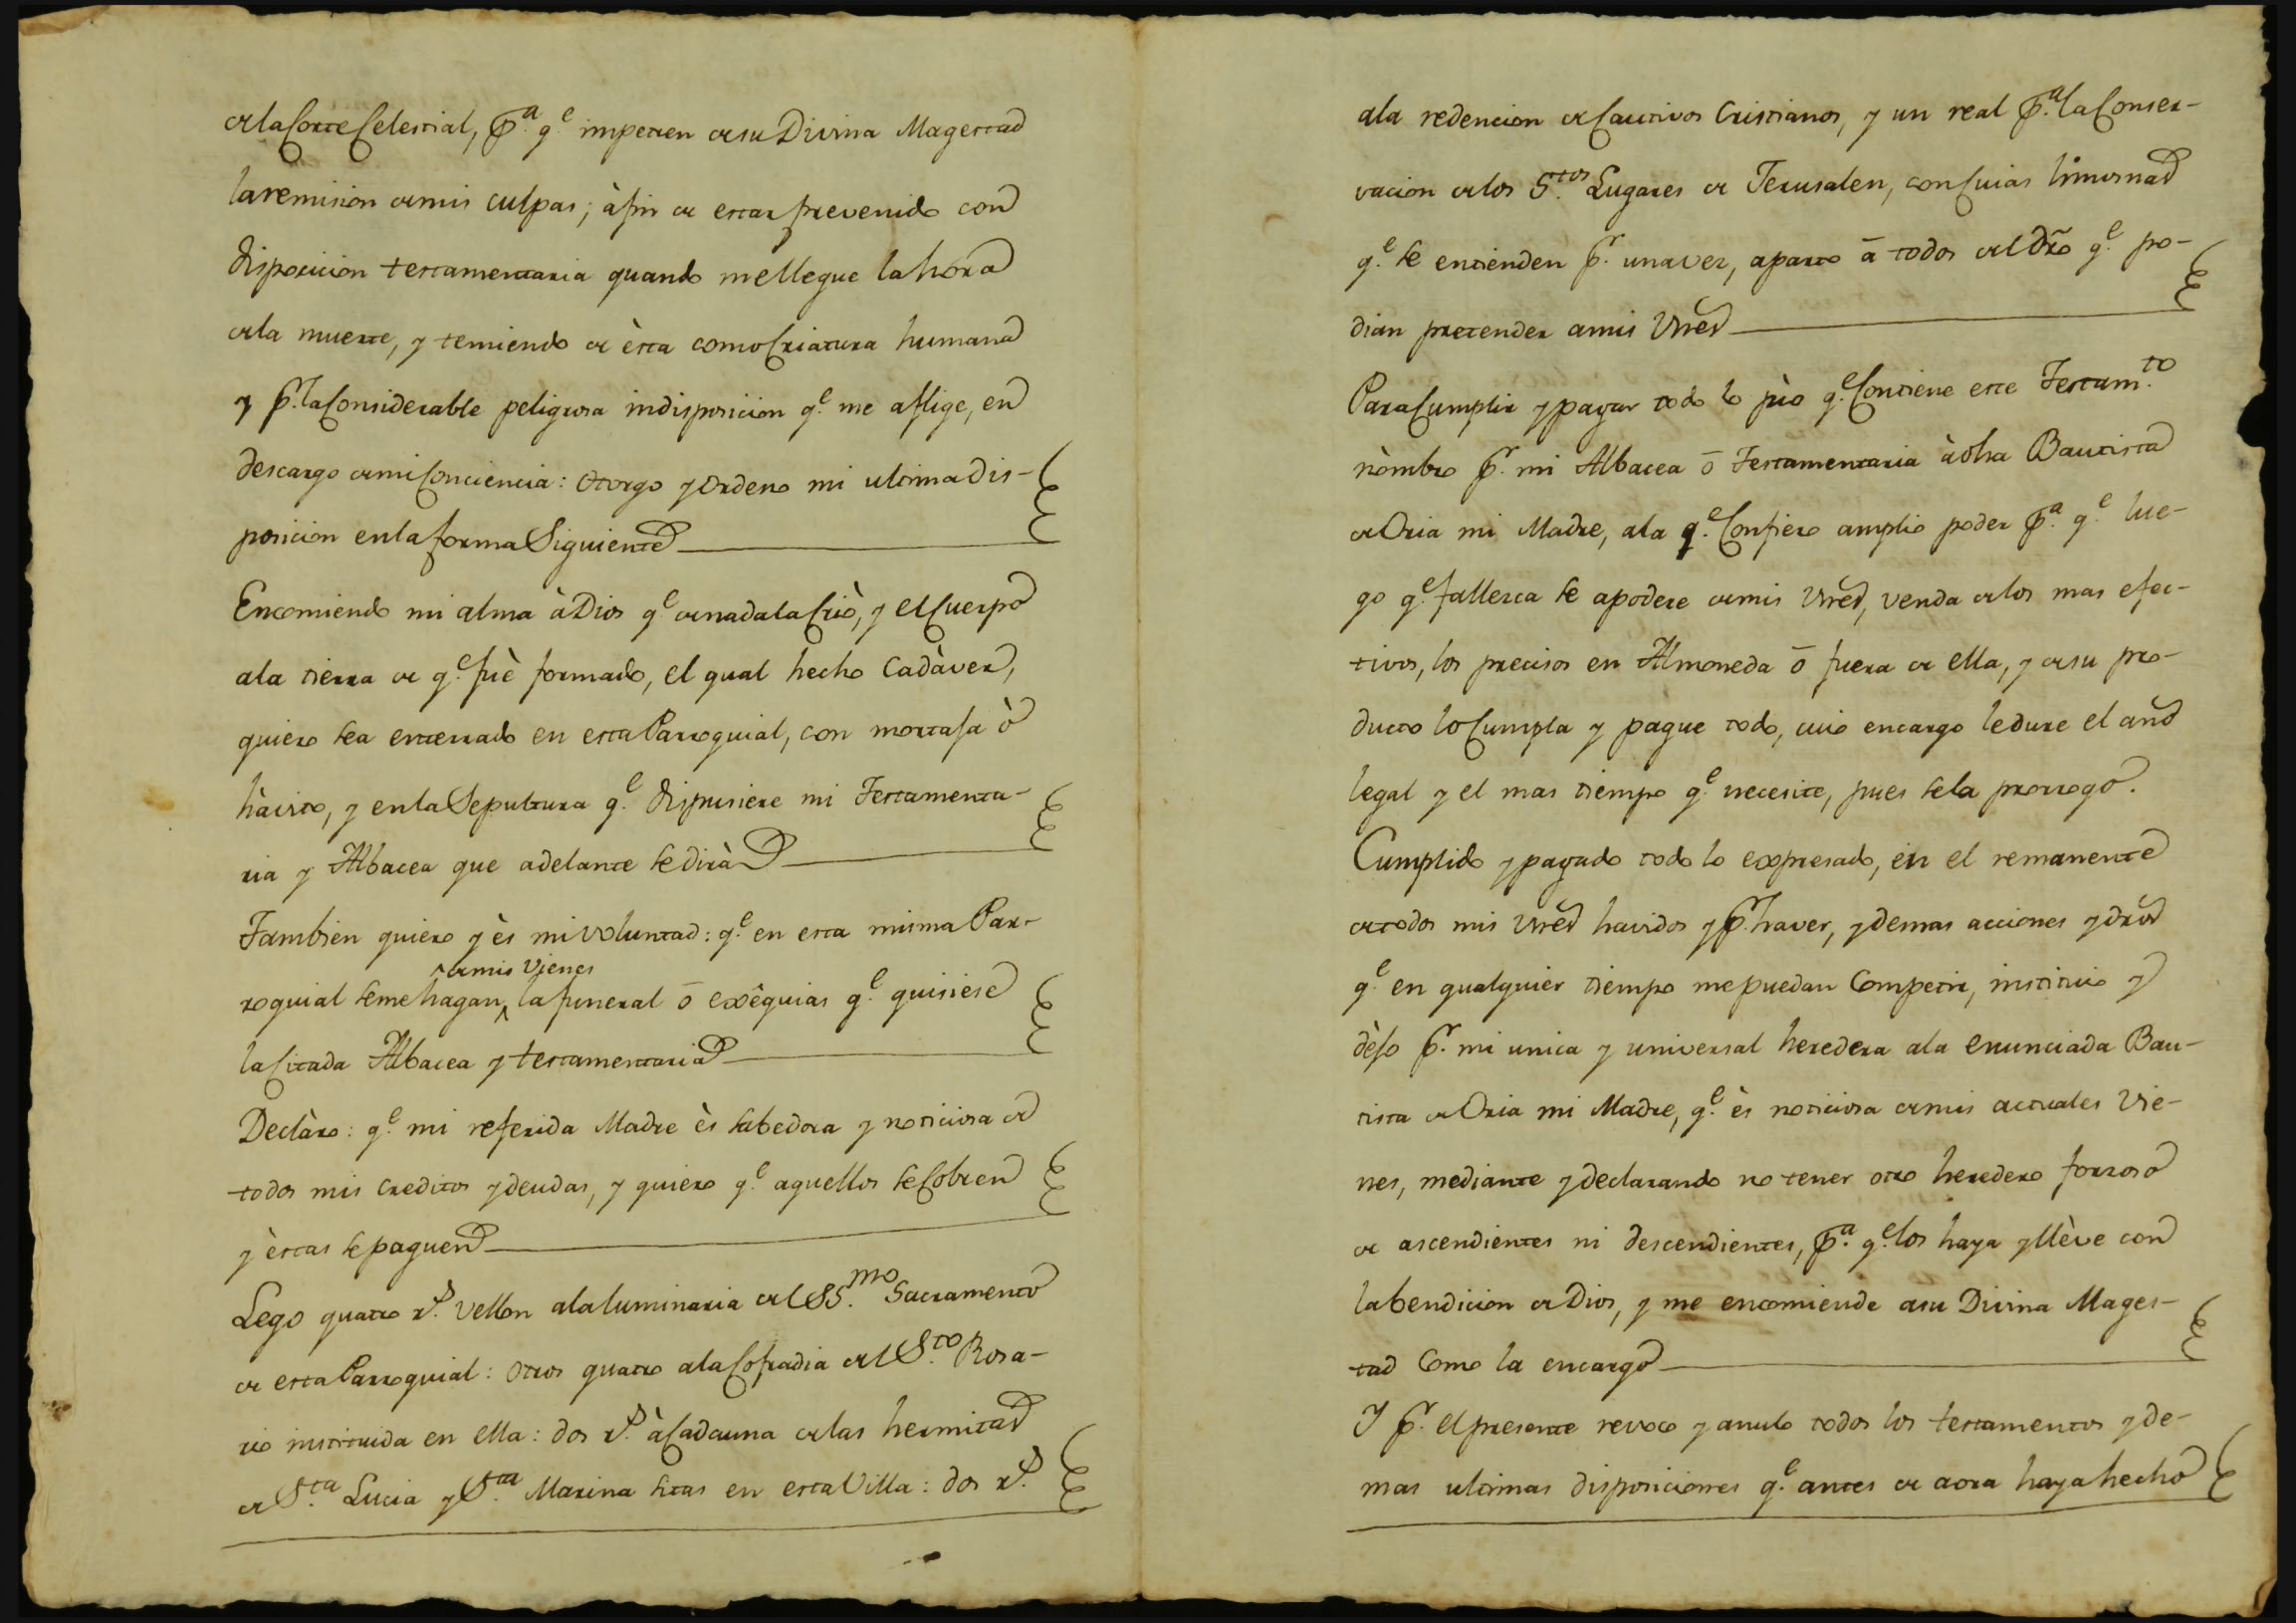 de la Corte Celestial, pª. qᵉ. impetren de su Divina Magestad
la remision de mis culpas; à fin de estar prevenido con
disposicion testamentaria quando me llegue la hora
de la muerte, y temiendo de èsta como Criatura humana
y pʳ. la Considerable peligrosa indisposicion qᵉ. me aflige, en
descargo de mi Conciencia: Otorgo y Ordeno mi ultima dis-
posicion en la forma Siguiente
Encomiendo mi alma à Dios qᵉ. de nada la Criò, y el Cuerpo
a la tierra de qᵉ. fuè formado, el qual hecho Cadàver,
quiero sea enterrado en esta Parroquial, con mortaja ò
hàvito, y en la Sepultura qᵉ. dispusiere mi Testamenta-
ria y Albacea que adelante se dirà
Tambien quiero y ès mi voluntad: qᵉ. en esta misma Par-
de mis Vienes
roquial se me hagan, la funeral ō exêquias qᵉ. quisiese
la Citada Albacea y testamentaria
Declàro: qᵉ. mi referida Madre ès sabedora y noticiosa de
todos mis creditos y deudas, y quiero qᵉ. aquellos se Cobren
y èstas se paguen
Lego quatro rˢ. vellon a la luminaria del SS.ᵐᵒ Sacramento
de esta Parroquial: otros quatro a la Cofradia del S.ᵗᵒ Rosa-
rio instituida en ella: dos rˢ. à Cada una de las hermitas
de S.ᵗᵃ Lucia y S.ᵗᵃ Marina sitas en esta Villa: dos rˢ.
a la redencion de Cautivos Cristianos, y un real pª. la Conser-
vacion de los S.ᵗᵒˢ Lugares de Jerusalen, con Cuias limosnas
qᵉ. se entienden pʳ. una vez, aparto ā todos del dr̃o qᵉ. po-
dian pretender a mis Vnes̃
Para Cumplir y pagar todo lo pìo qᵉ. Contiene este Testam.ᵗᵒ
nòmbro pʳ. mi Albacea ō Testamentaria à dha Bautista
de Oria mi Madre, a la qᵉ. Confiero amplio poder pª. qᵉ. lue-
go qᵉ. fallesca se apodere de mis Vnes̃, venda de los mas efec-
tivos, los precisos en Almoneda ō fuera de ella, y de su pro-
ducto lo Cumpla y pague todo, cuio encargo le dure el año
legal y el mas tiempo qᵉ. necesite, pues se la prorrogo.
Cumplido y pagado todo lo expresado, en el remanente
de todos mis Vnes̃ havidos y pʳ. haver, y demas acciones y dr̃os
qᵉ. en qualquier tiempo me puedan Competir, instituio y
dèjo pʳ. mi unica y universal heredera a la enunciada Bau-
tista de Oria mi Madre, qᵉ. ès noticiosa de mis actuales Vie-
nes, mediante y declarando no tener otro heredero forzoso
de ascendientes ni descendientes, pª. qᵉ. los haya y llève con
la bendicion de Dios, y me encomiende a su Divina Mages-
tad Como la encargo
Y pʳ. el presente revoco y anulo todos los testamentos y de-
mas ultimas disposiciones qᵉ. antes de aora haya hecho